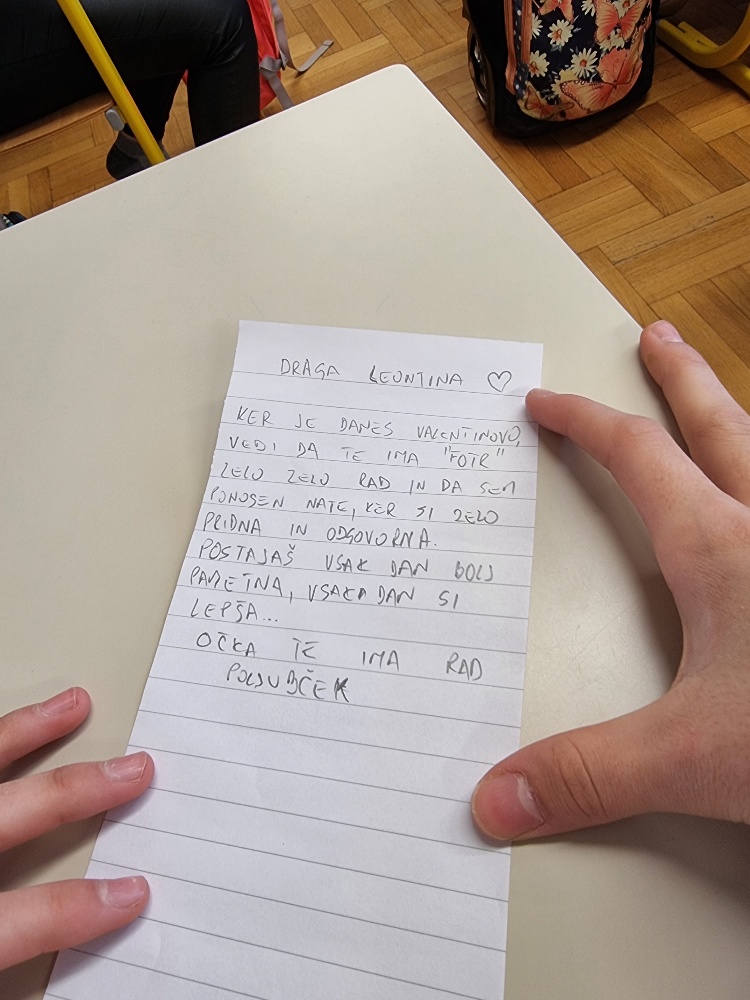 DRAGA LEONTINA ♡
KER JE DANES VALENTINOVO,
VEDI DA TE IMA "FOTR"
ZELO ZELO RAD IN DA SEM
PONOSEN NATE, KER SI ZELO
PRIDNA IN ODGOVORNA.
POSTAJAŠ VSAK DAN BOLJ
PAMETNA, VSAK DAN SI
LEPŠA...
OČKA TE IMA RAD
POLJUBČEK